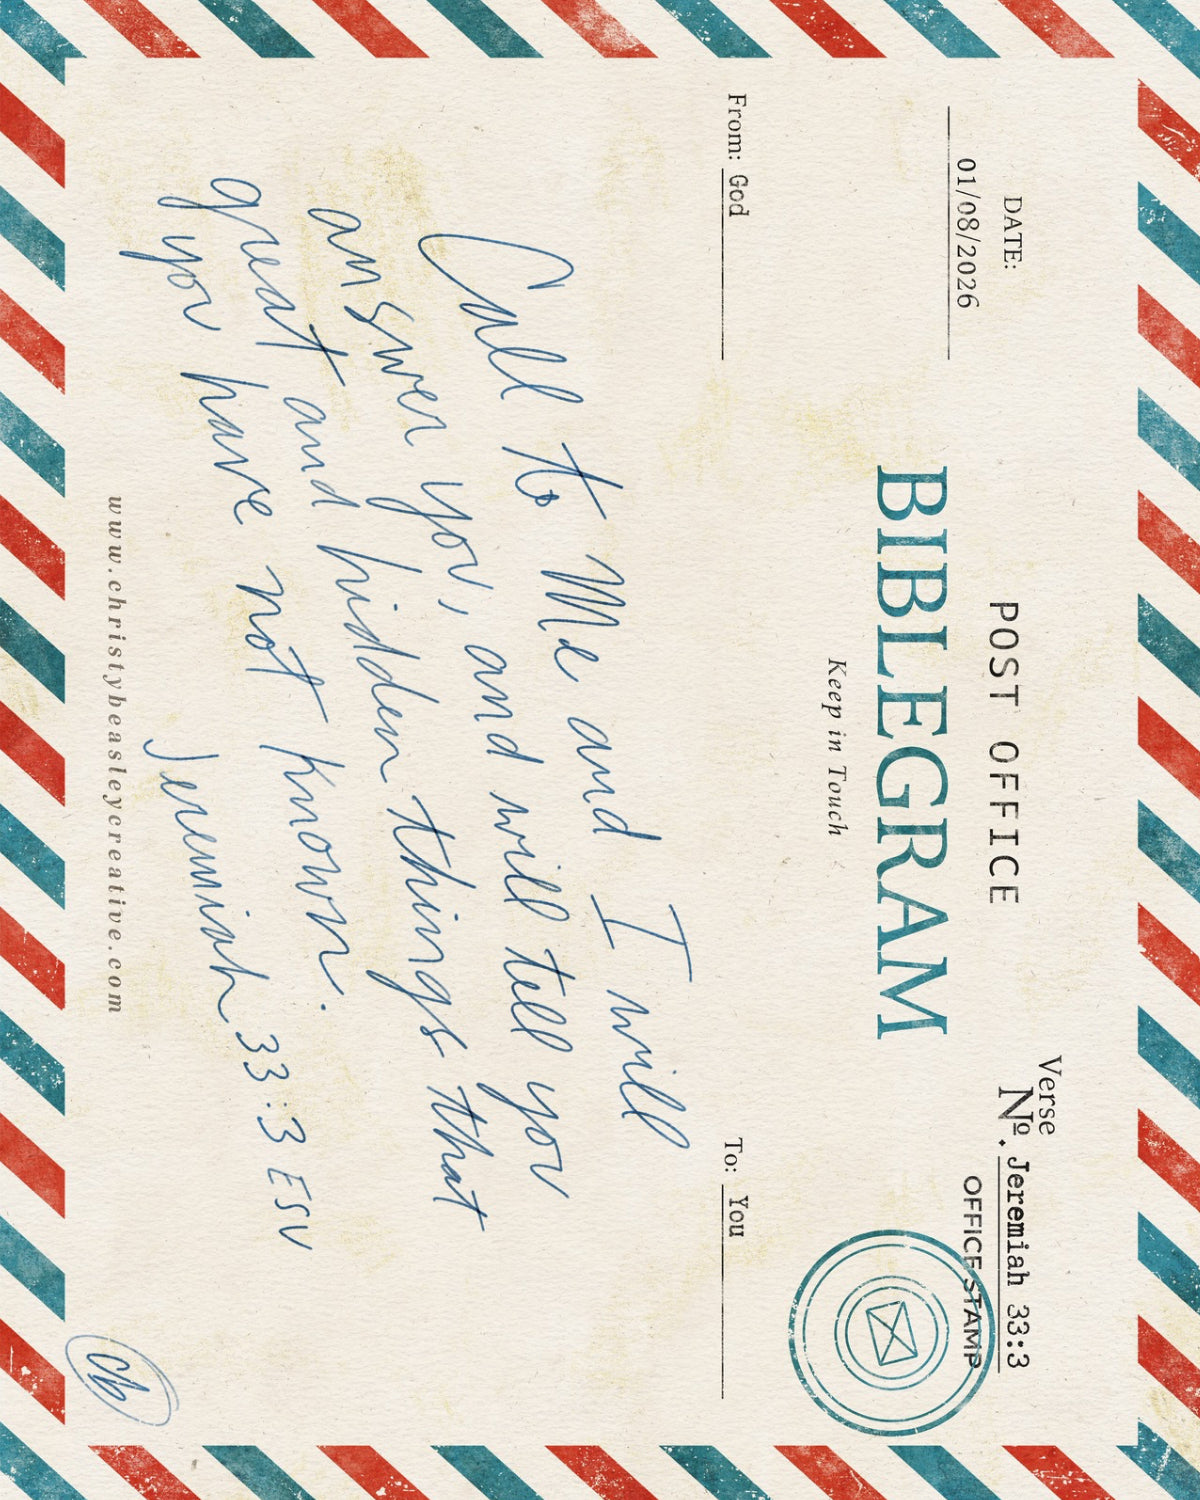 POST OFFICE
DATE:
01/08/2026
BIBLEGRAM
Keep in Touch
Verse
No. Jeremiah 33:3
OFFICE STAMP
From: God
To: You
Call to Me and I will
answer you, and will tell you
great and hidden things that
you have not known.
Jeremiah 33:3 ESV
www.christybeasleycreative.com
cb